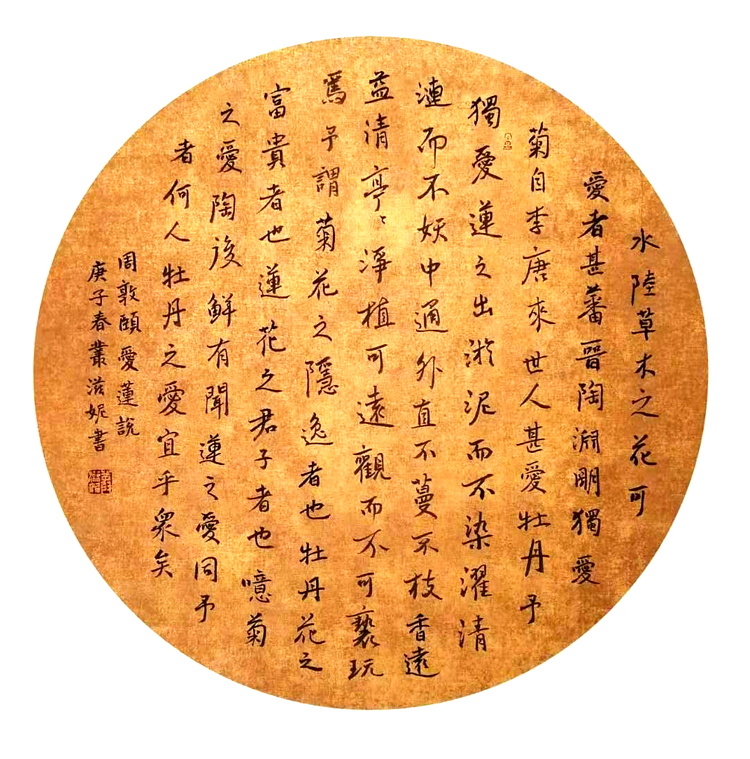 水陸草木之花可
愛者甚蕃晉陶淵明獨愛
菊自李唐來世人甚愛牡丹予
獨愛蓮之出淤泥而不染濯清
漣而不妖中通外直不蔓不枝香遠
益清亭〻淨植可遠觀而不可褻玩
焉予謂菊花之隱逸者也牡丹花之
富貴者也蓮花之君子者也噫菊
之愛陶後鮮有聞蓮之愛同予
者何人牡丹之愛宜乎眾矣
周敦頤愛蓮說
庚子春叢滋妮書